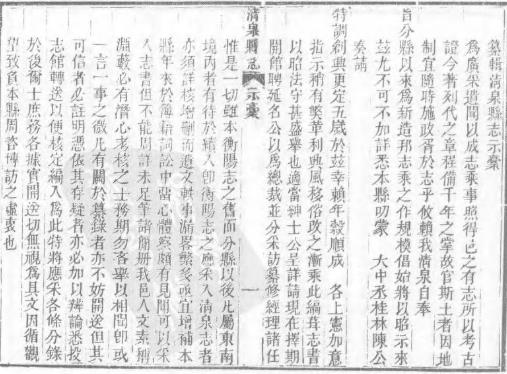 纂輯清泉縣志示稾
為廣采遺聞以成志乘事照得邑之有志所以考古
證今著列代之章程備千年之掌故官斯土者因地
制宜隨時施政胥於志乎攸賴我清泉自奉
旨分縣以來為新造邦志乘之作規模倡始將以昭示來
茲尤不可不加詳悉本縣叨蒙 大中丞桂林陳公
奏請
特調創興更定五歲於茲幸賴年穀順成 各上憲加意
指示稍有繁華利興風移俗改之漸乘此編葺志書
以昭法守甚盛舉也適當紳士公呈詳請現在擇期
開館聘延名公以為總裁並分采訪纂修經理諸任
清泉縣志 示稾 一
惟是一切雖本衡陽志之舊而分縣以後凡屬東南
境內者有待於續入卽衡陽志之應采入清泉志者
亦須詳核增刪而這文軼事湔畧繁多亟宜增補本
縣年來於簿領詞訟中留心體察頗有見聞可以采
入志書但不能周詳未足筆諸簡册我邑人文素稱
淵藪必有潛心考核之士務期勿吝舉以相聞卽或
一言一事之微凡有關於纂錄者亦不妨開送但其
可信者必註明憑依其有疑者亦必加以辨論悉投
志館轉送以便核定編入為此特將應采各條分錄
於後爾士庶務各據實開送切無視為具文因循觀
望致負本縣周咨博訪之虛衷也